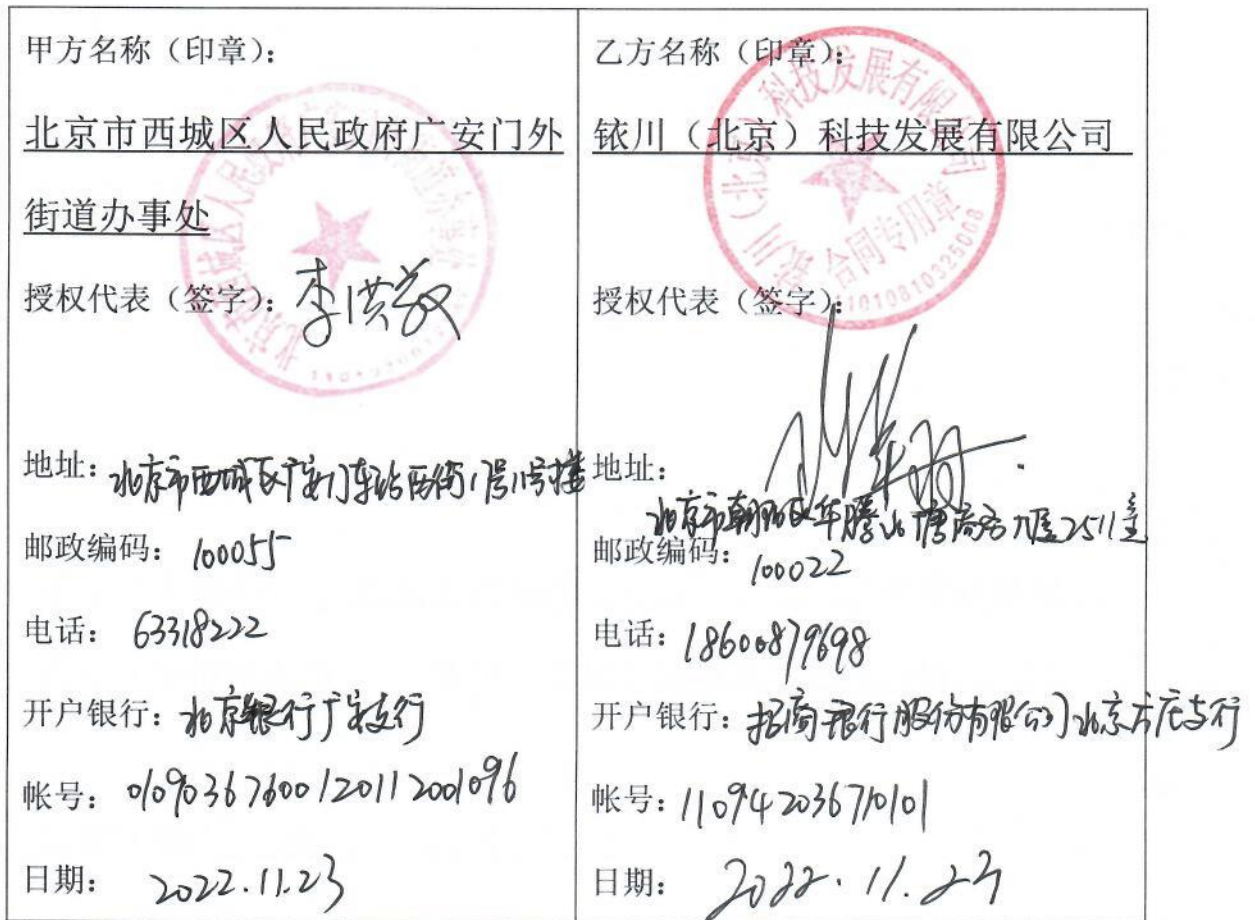 甲方名称（印章）：
北京市西城区人民政府广安门外
街道办事处
授权代表（签字）：李洪敬
地址：北京市西城区广安门车站西街17号11号楼
邮政编码：100055
电话：63318222
开户银行：北京银行广安支行
帐号：01090367600120112001096
日期：2022.11.23
乙方名称（印章）：
铱川（北京）科技发展有限公司
授权代表（签字）：
地址：
北京市朝阳区华腾北塘商务大厦2511室
邮政编码：100022
电话：18600879698
开户银行：招商银行股份有限公司北京方庄支行
帐号：110942036710101
日期：2022.11.23
铱川（北京）科技发展有限公司
合同专用章